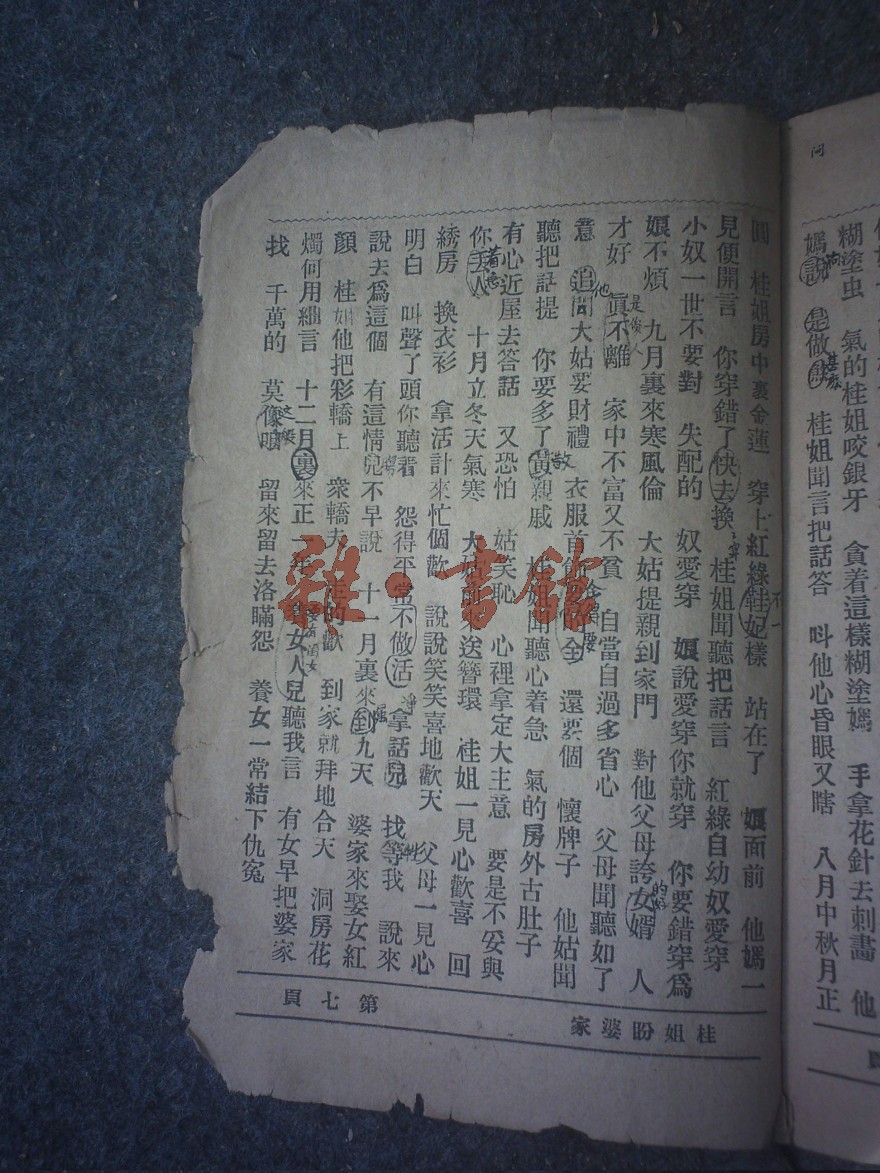 問
糊塗虫 氣的桂姐咬銀牙 貪着這樣糊塗媽 手拿花針去刺畵 他
媽說 是做 桂姐聞言把話答 呌他心昏眼又瞎 八月中秋月正
圓 桂姐房中裏金蓮 穿上紅綠鞋 樣 站在了 娘面前 他媽一
見便開言 你穿錯了快去換 桂姐聞聽把話言 紅綠自幼奴愛穿
小奴一世不要對 失配的 奴愛穿 娘說愛穿你就穿 你要錯穿爲
娘不煩 九月裏來寒風倫 大姑提親到家門 對他父母誇女婿 人
才好 眞不離 家中不富又不貧 自當自過多省心 父母聞聽如了
意 追問大姑要財禮 衣服首 全 還要個 懷牌子 他姑聞
聽把話提 你要多了黃親戚 桂姐聞聽心着急 氣的房外古肚子
有心近屋去答話 又恐怕 姑笑恥 心裡拿定大主意 要是不妥與
你丢人 十月立冬天氣寒 大姑 送簪環 桂姐一見心歡喜 回
綉房 換衣衫 拿活計來忙個歡 說說笑笑喜地歡天 父母一見心
明白 叫聲了頭你聽着 怨得平常不做活 拿話兒 找等我 說來
說去爲這個 有這情兒不早說 十一月裏來到九天 婆家來娶女紅
顏 桂姐他把彩轎上 衆轎夫 的歡 到家就拜地合天 洞房花
燭何用細言 十二月裏來正一年 女人兒聽我言 有女早把婆家
找 千萬的 莫像咱 留來留去洛瞞怨 養女一常結下仇寃
第七頁
桂姐盼婆家
雜·書舘